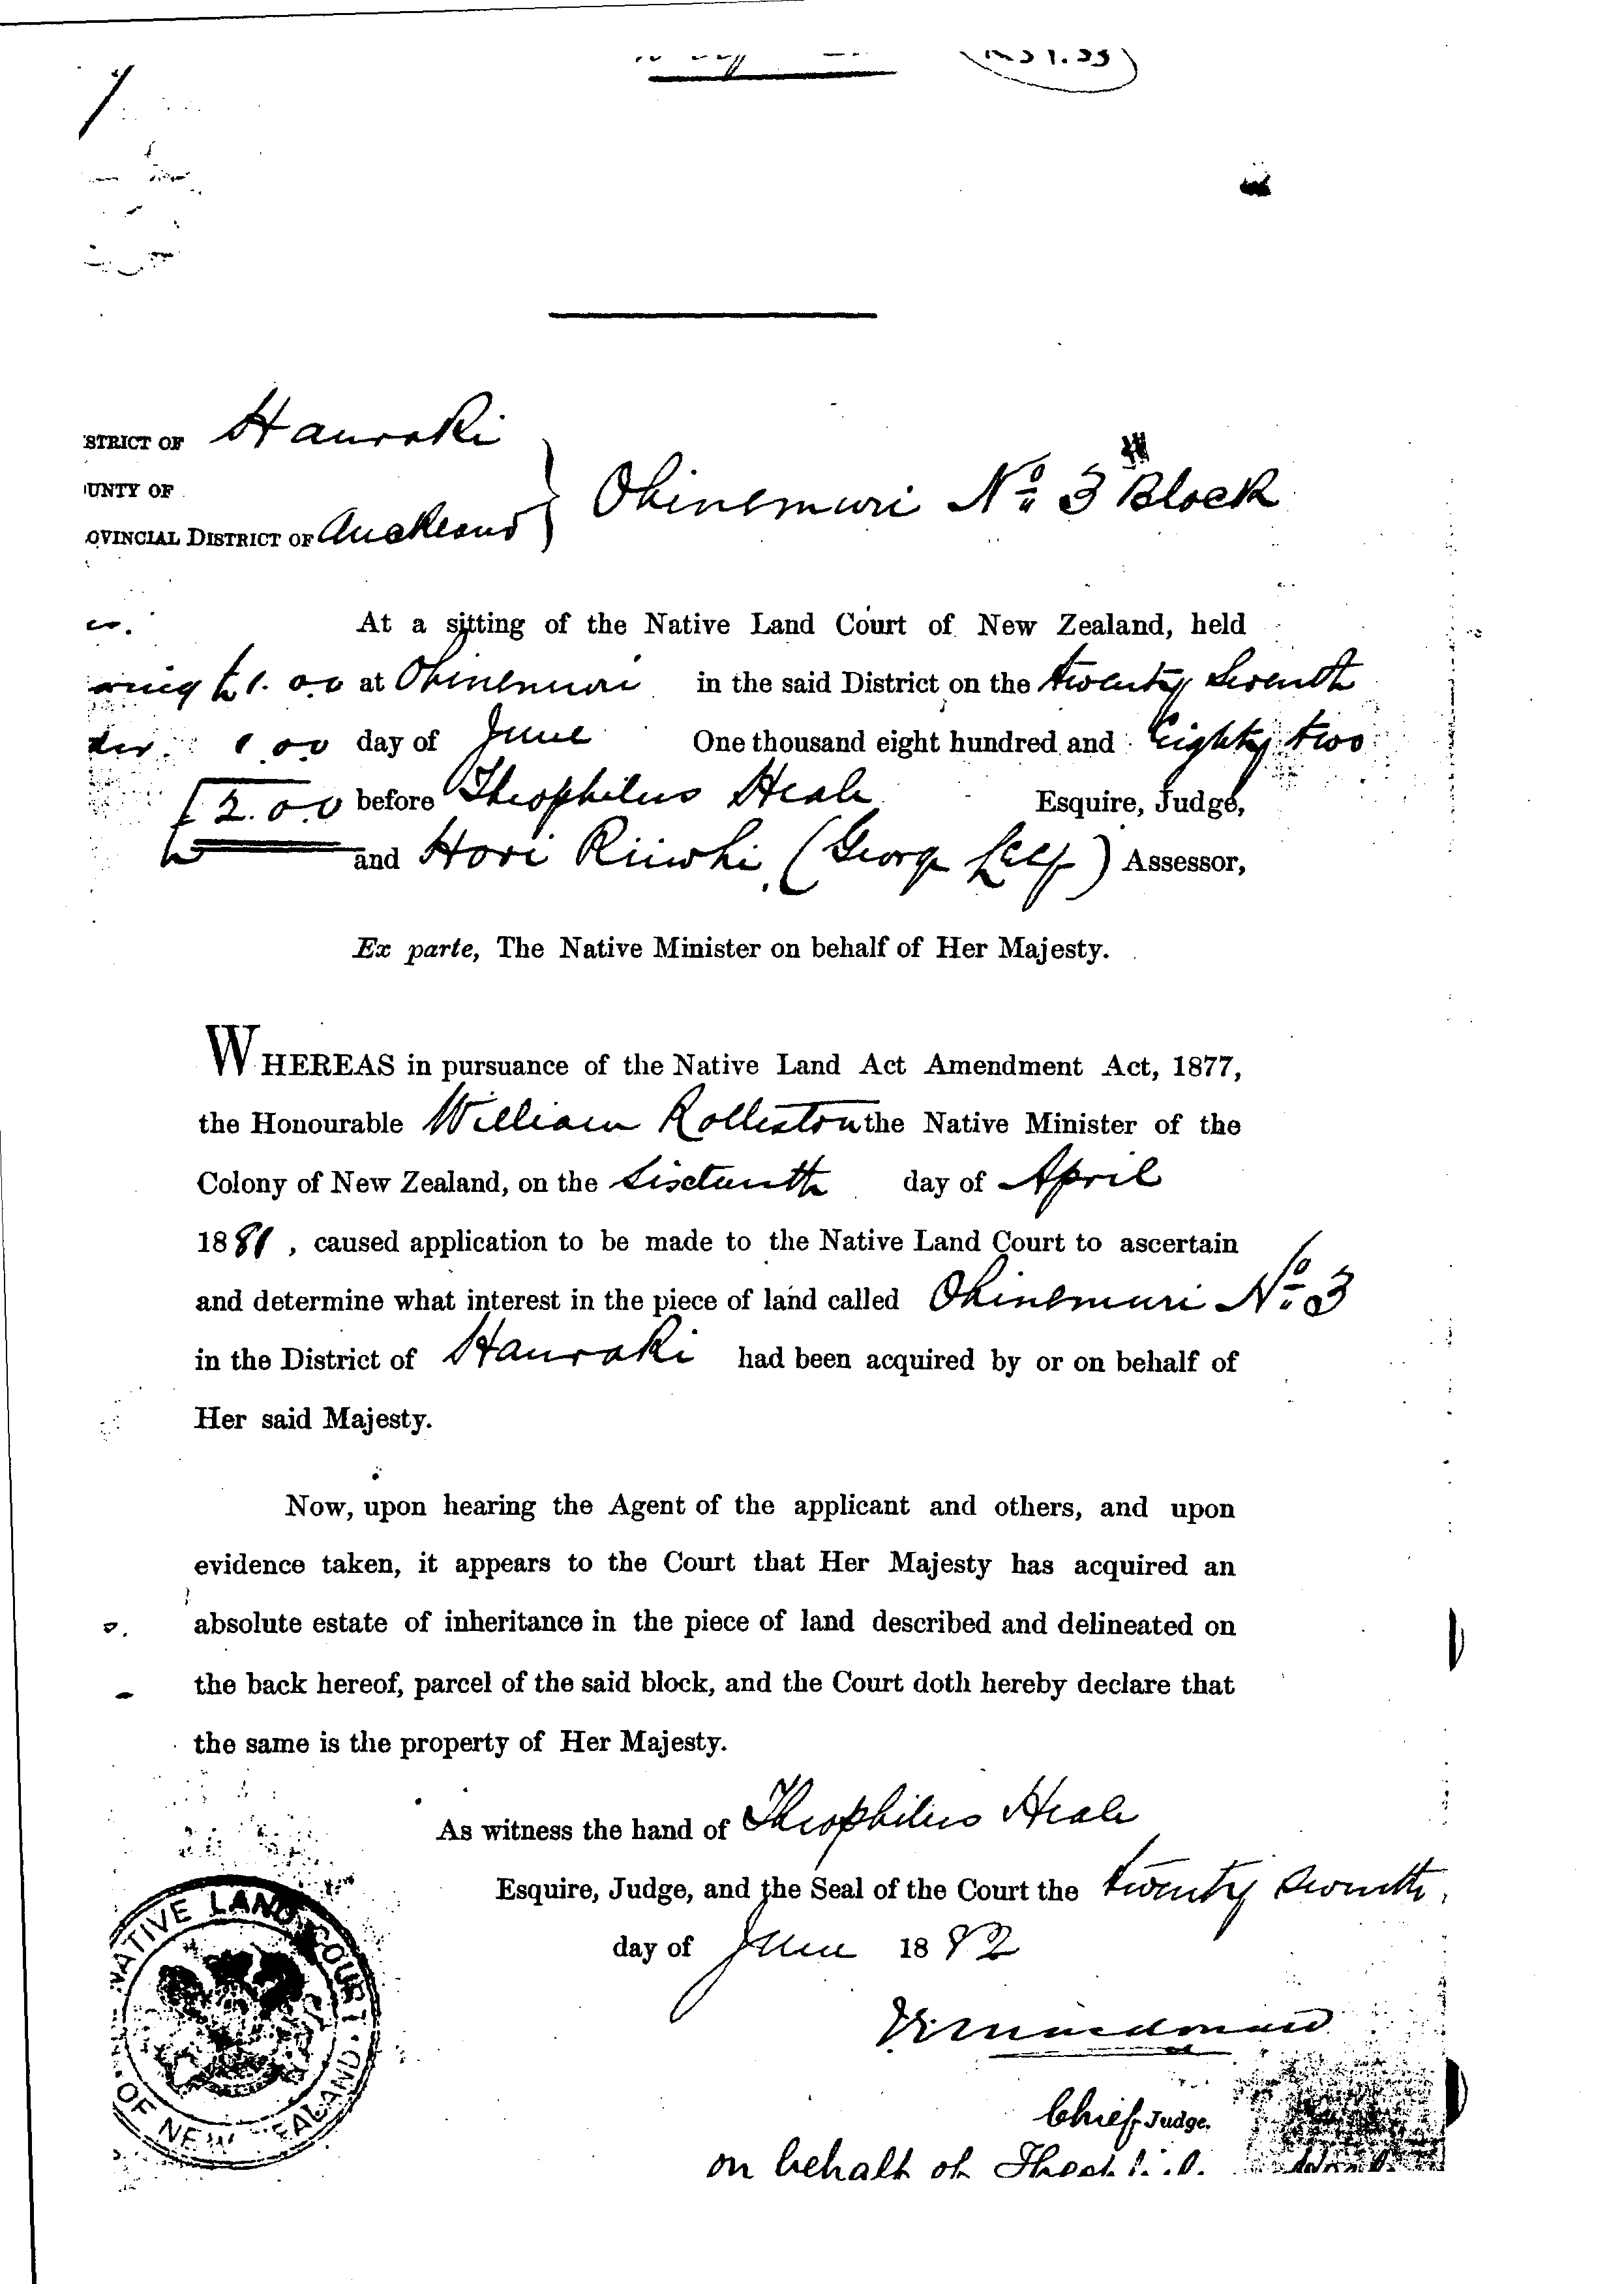 'STRICT OF Hauraki
UNTY OF
OVINCIAL DISTRICT OF Auckland } Ohinemuri No 3 Block
At a sitting of the Native Land Court of New Zealand, held
1.0.0 at Ohinemuri in the said District on the twenty seventh
1.0.0 day of June One thousand eight hundred and Eighty two
£2.0.0 before Theophilus Heale Esquire, Judge,
and Hori Riiwhi, (George Leef) Assessor,
Ex parte, The Native Minister on behalf of Her Majesty.
WHEREAS in pursuance of the Native Land Act Amendment Act, 1877,
the Honourable William Rolleston the Native Minister of the
Colony of New Zealand, on the Sixteenth day of April
1881, caused application to be made to the Native Land Court to ascertain
and determine what interest in the piece of land called Ohinemuri No 3
in the District of Hauraki had been acquired by or on behalf of
Her said Majesty.
Now, upon hearing the Agent of the applicant and others, and upon
evidence taken, it appears to the Court that Her Majesty has acquired an
absolute estate of inheritance in the piece of land described and delineated on
the back hereof, parcel of the said block, and the Court doth hereby declare that
the same is the property of Her Majesty.
As witness the hand of Theophilus Heale
Esquire, Judge, and the Seal of the Court the twenty seventh
day of June 1882
Chief Judge.
on behalf of
NATIVE LAND COURT OF NEW ZEALAND